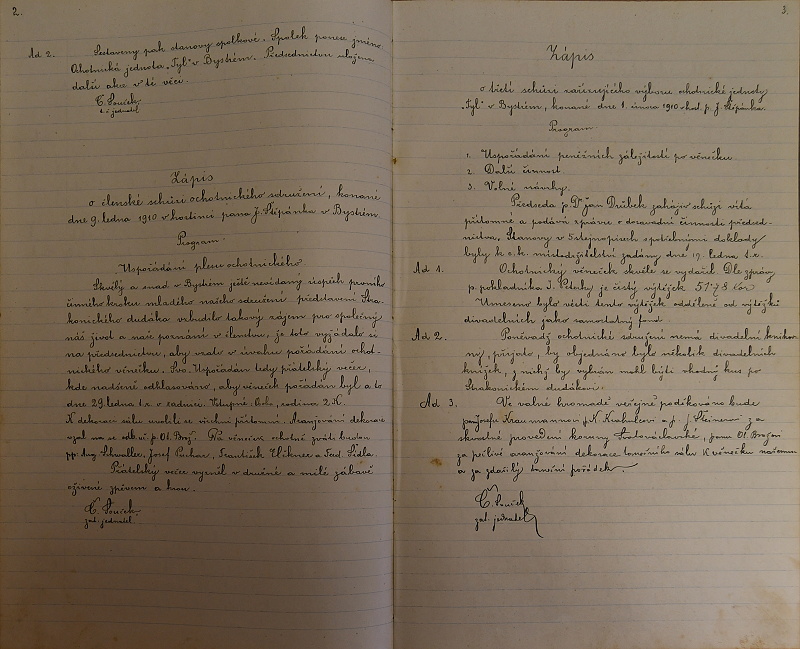 2.
Ad 2. Sestaveny pak stanovy spolkové. Spolek ponese jméno
Ochotnická jednota „Tyl" v Bystrém. Předsednictvu uložena
další akce v té věci.
Č. Souček
t. č. jednatel
Zápis
o členské schůzi ochotnického sdružení, konané
dne 9. ledna 1910 v hostinci pana J. Štěpánka v Bystrém.
Program
Uspořádání plesu ochotnického.
Skvělý a snad v Bystrém ještě nevídaný úspěch prvního
činného kroku mladého našeho sdružení představení Stra-
konického dudáka vzbudilo takový zájem pro společný
náš život a naše poznání v členstvu, že toto vyžádalo si
na předsednictvu, aby vzalo v úvahu pořádání ochot-
nického věnečku. Uspořádán tedy přátelský večer,
kde nadšeně odhlasováno, aby věneček pořádán byl a to
dne 29. ledna t. r. v radnici. Vstupné: rodina 2 K.
K dekoraci sálu uvolili se všichni přítomní. Aranžování dekorace
vzal na se p. Ol. Brož. Na věneček ochotně zváti budou
pp. Aug. Schwaller, Josef Puchar, František Klíkner a Tad. Šídla.
Přátelský večer vyzněl v družné a milé zábavě
oživené zpěvem a hrou.
Č. Souček
zat. jednatel
3.
Zápis
o třetí schůzi zařizujícího výboru ochotnické jednoty
„Tyl" v Bystrém, konané dne 1. února 1910 v host. p. J. Štěpánka.
Program
1. Uspořádání peněžních záležitostí po věnečku
2. Další činnost
3. Volné návrhy.
Předseda p. Dr Jan Drábek zahájiv schůzi vítá
přítomné a podává zprávu o dosavadní činnosti předsed-
nictva. Stanovy v 5 stejnopisech s potřebnými doklady
byly k c. k. místodržitelství zadány dne 19. ledna t. r.
Ad 1. Ochotnický věneček skvěle se vydařil. Dle zprávy
p. pokladníka je čistý výtěžek 51·78 Kor
Usneseno bylo vésti tento výtěžek odděleně od výtěžků
divadelních jako samostatný fond.
Ad 2. Poněvadž ochotnické sdružení nemá divadelní knihov-
ny, přijato, by objednáno bylo několik divadelních
knížek, z nichž by vybrán mohl býti vhodný kus po
Strakonickém dudákovi.
Ad 3. Ve valné hromadě veřejně poděkováno bude
panu Josefu Kraumannovi, K. Krahulcovi a J. Steinerovi za
skvostné provedení koruny Svatováclavské, panu Ol. Brožovi
za pečlivé aranžování dekorace tanečního sálu k věnečku našemu
a za zdařilý taneční pořádek.
Č. Souček
zat. jednatel